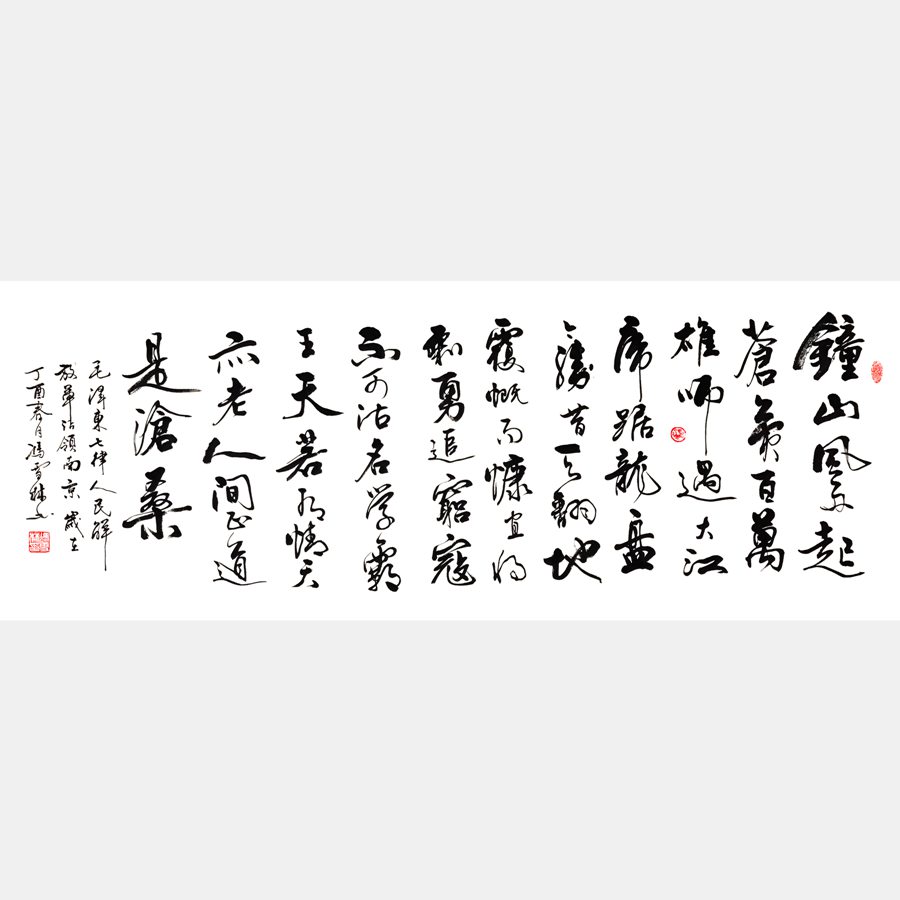 鐘山風雨起
蒼黃百萬
雄師過大江
虎踞龍盤
今勝昔天翻地
覆慨而慷宜將
剩勇追窮寇
不可沽名学霸
王天若有情天
亦老人間正道
是滄桑
毛澤東七律人民解
放軍佔領南京 歲在
丁酉春月馮雪林书